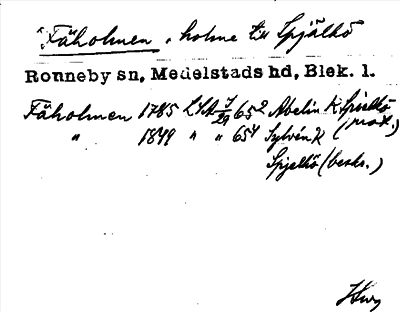 "Fäholmen, holme till Spjälkö
Ronneby sn, Medelstads hd, Blek. l.
Fäholmen 1785 LSA J/29 65² Abelin K Spjelkö (prot.)
" 1849 " " 65⁴ Sylvén K
Spjelkö (beskr.)